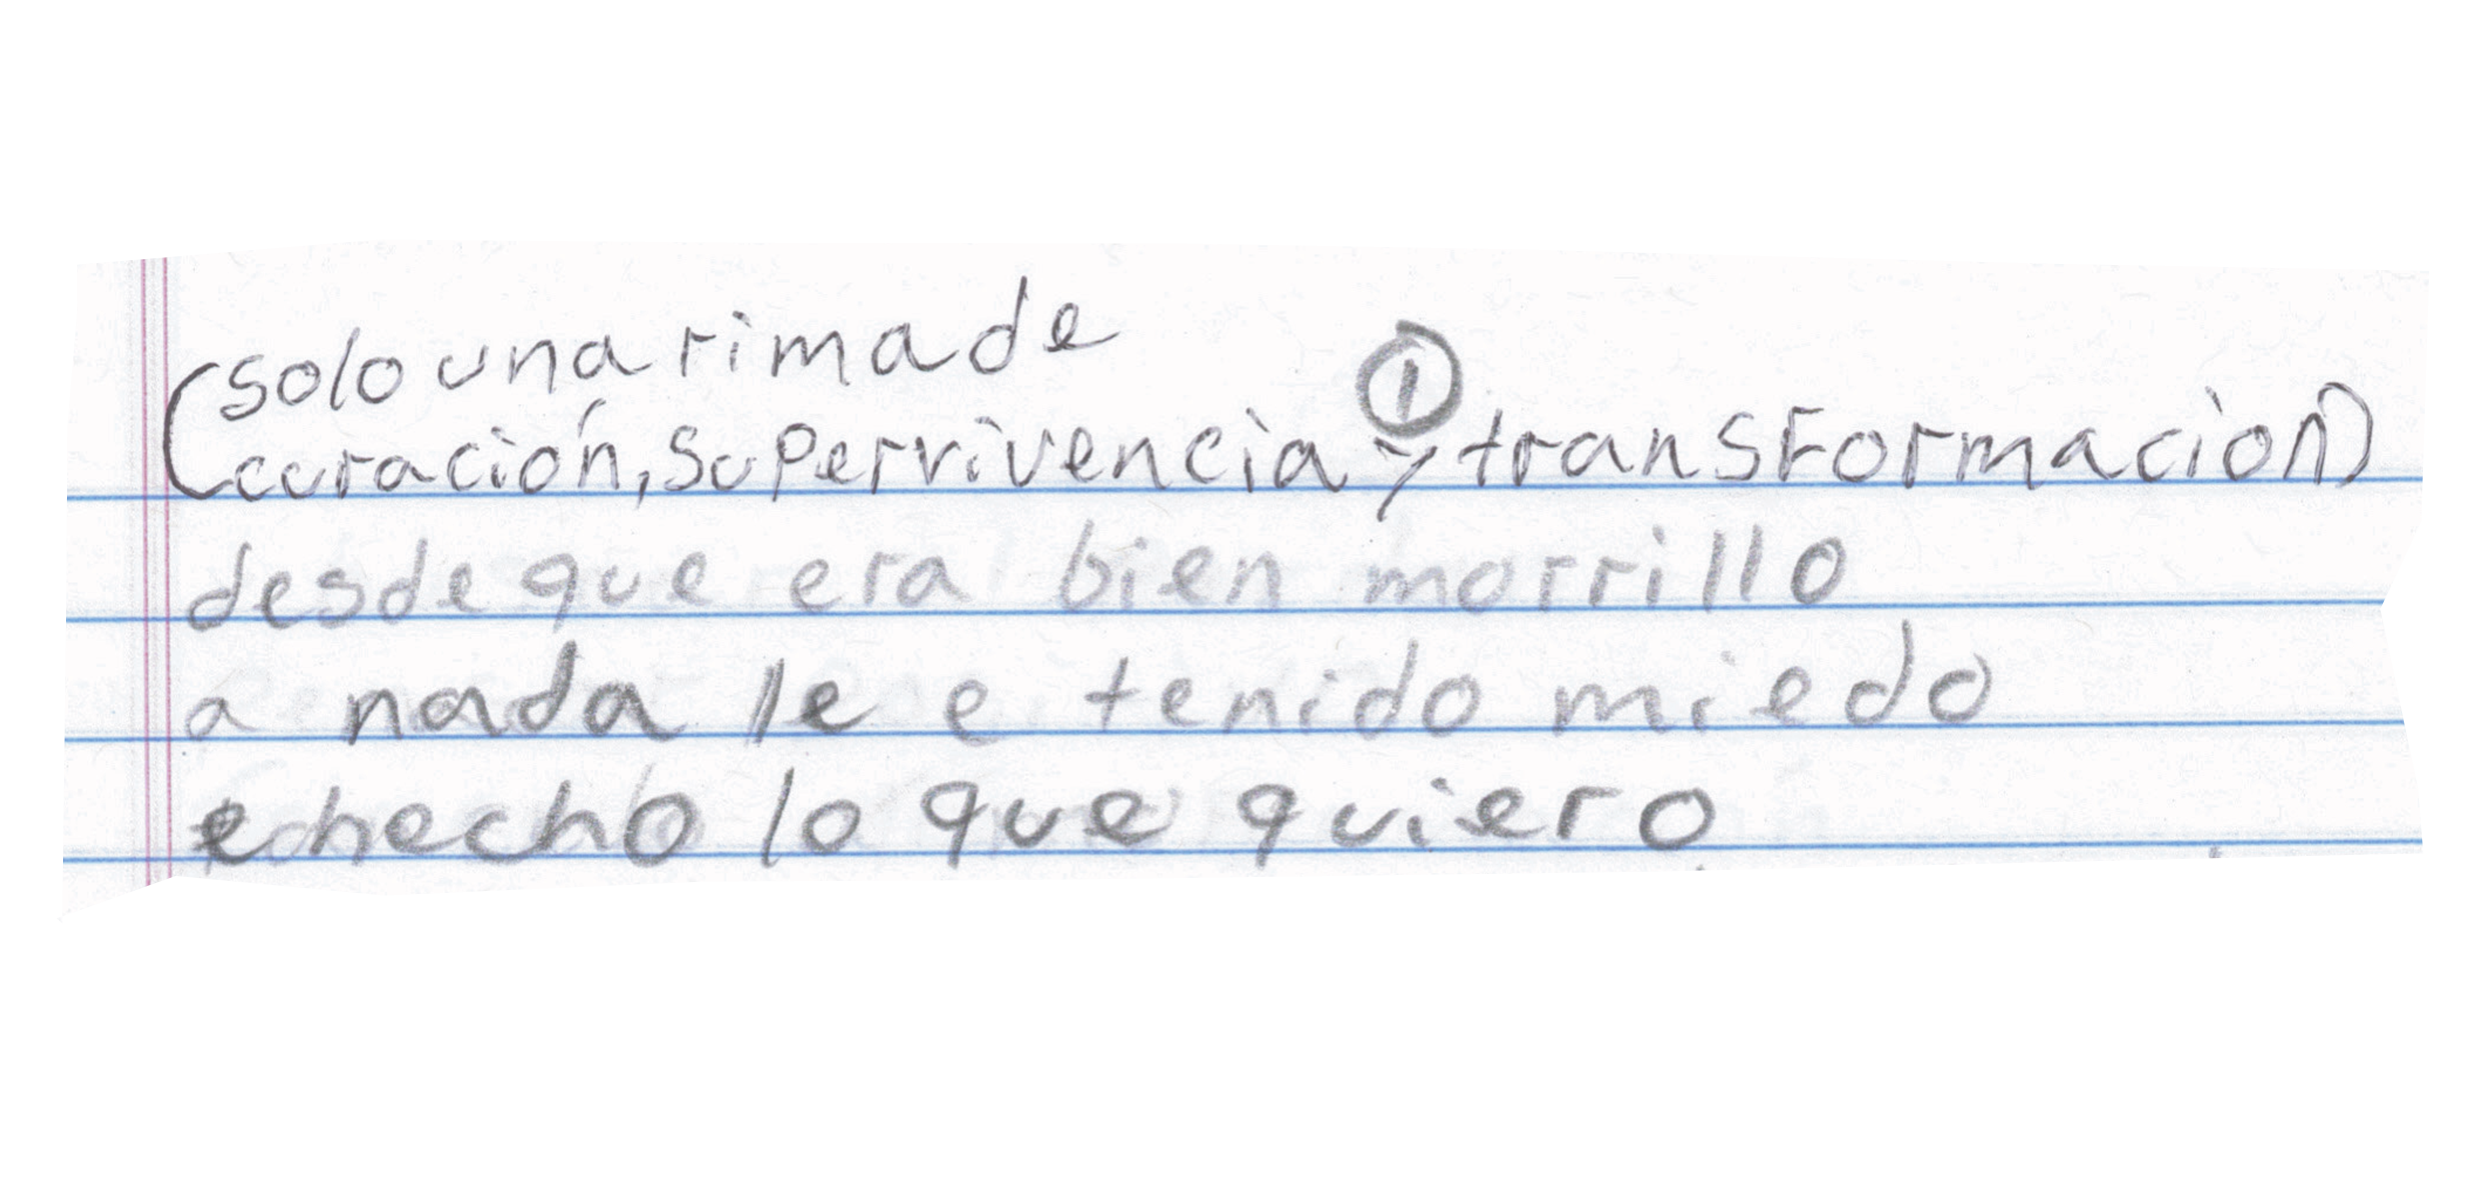 (solo una rima de
①
curación, supervivencia y transFormación)
desde que era bien morrillo
a nada le e tenido miedo
e hecho lo que quiero